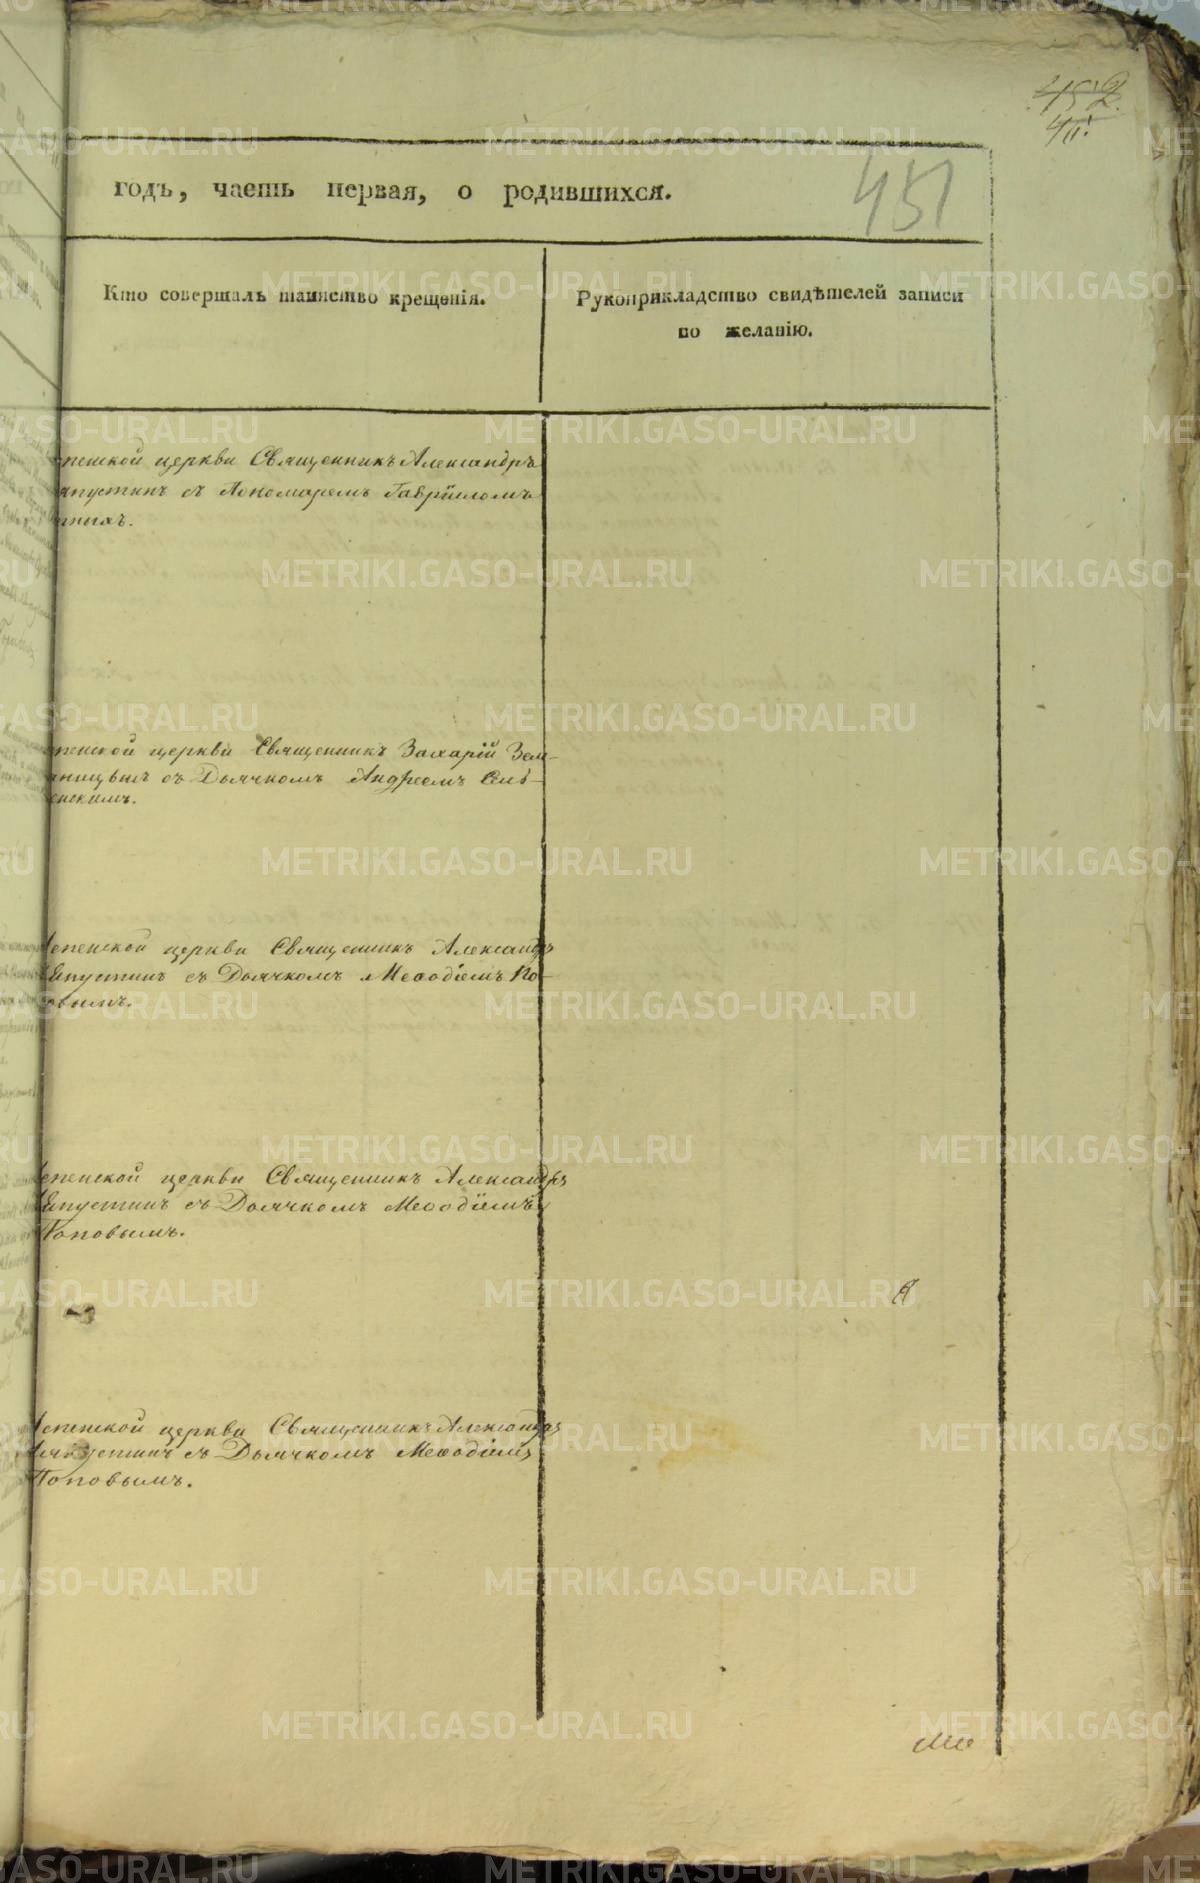 452.
411.
451
годъ, часть первая, о родившихся.
Кто совершалъ таинство крещенія.
Рукоприкладство свидѣтелей записи
по желанію.
пенской церкви Священникъ Александръ
апустинъ съ Пономаремъ Гавріиломъ
пенской церкви Священникъ Захарій Зем-
съ Дьячкомъ Андреемъ
енскимъ.
спенской церкви Священникъ Александръ
Капустинъ съ Дьячкомъ Меѳодіемъ По-
повымъ.
спенской церкви Священникъ Александръ
Капустинъ съ Дьячкомъ Меѳодіемъ
Поповымъ.
спенской церкви Священникъ Александръ
Капустинъ съ Дьячкомъ Меѳодіемъ
Поповымъ.
METRIKI.GASO-URAL.RU